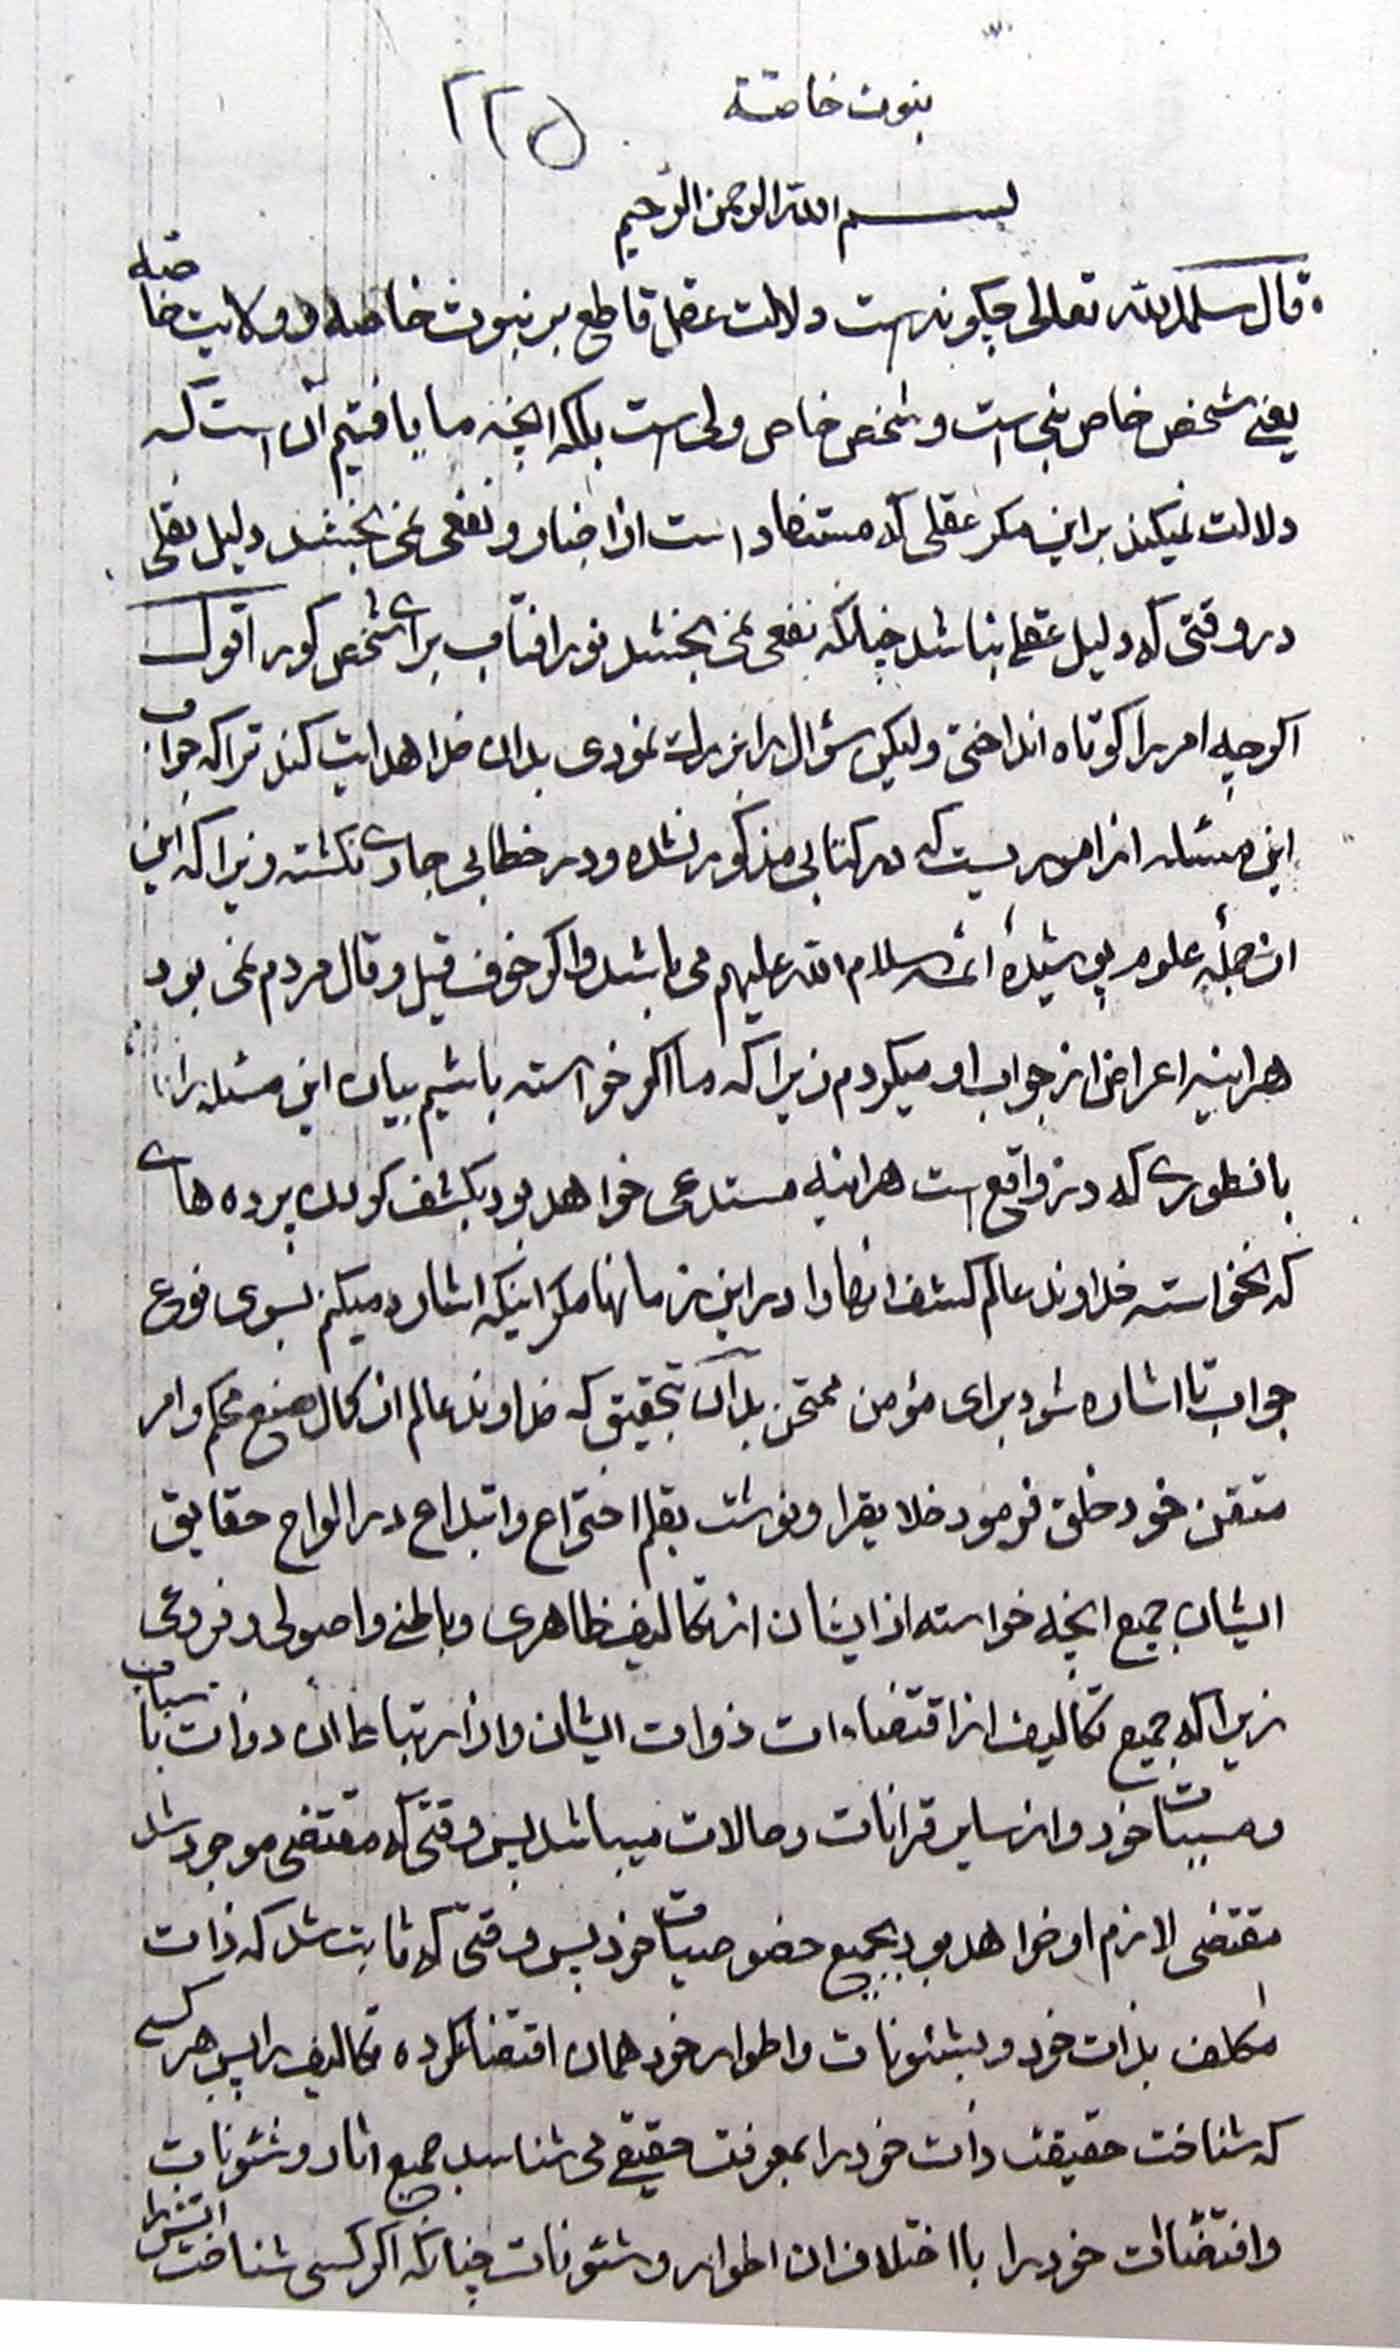 نبوت خاصة
۲۲۵
بسم الله الرحمن الرحیم
قال سلمه الله تعالی چکونه است دلالت عقل قاطع بر نبوت خاصه و ولایت خاصه
یعنی شخص خاص نبی است و شخص خاص ولی است بلکه آنچه ما یافتیم آن است که
دلالت نمیکند بر این مکر عقلی که مستفاد است از اخبار و نفعی نمی بخشد دلیل نقلی
در وقتی که دلیل عقلی نباشد چنانکه نفعی نمی بخشد نور افتاب برای شخص کور اقول
اکرچه امر را کوتاه انداختی ولیکن سؤال را بزرك نمودی بدان خدا هدایت کند ترا که جواب
این مسئله از اموریست که در کتابی مذکور نشده و در خطابی جاری نکشته زیرا که این
از جملهٔ علوم پوشیدهٔ ائمه سلام الله علیهم می باشد و اکر خوف قیل و قال مردم نمی بود
هراینه اعراض از جواب او میکردم زیرا که ما اکر خواسته باشیم بیان این مسئله را
بانطوری که در واقع است هراینه مستدعی خواهد بود بکشف کردن پرده های
که نخواسته خداوند عالم کشف انها را در این زمانها مکر اینکه اشاره میکنم بسوی نوع
جواب تا اشاره شود برای مؤمن ممتحن بدان بتحقیق که خداوند عالم از کمال صنع محکم و امر
متقن خود خلق فرمود خلایقرا و نوشت بقلم اختراع و ابتداع در الواح حقایق
ایشان جمیع آنچه خواسته از ایشان از تکالیف ظاهری و باطنی و اصولی و فروعی
زیرا که جمیع تکالیف از اقتضاءات ذوات ایشان و از ارتباط ان ذوات باسباب
و مسببات خود و از سایر قرانات و حالات میباشد پس وقتی که مقتضی موجود شد
مقتضی لازم او خواهد بود بجمیع خصوصیات خود پس وقتی که ثابت شد که ذات
مکلف بذات خود و بشئونات و اطوار خود همان اقتضا کرده تکالیف را پس هر کسی
که شناخت حقیقت ذات خود را بمعرفت حقیقی می شناسد جمیع اثار و شئونات
و اقتضائات خود را با اختلاف ان اطوار و شئونات چنانکه اکر کسی شناخت اتش را